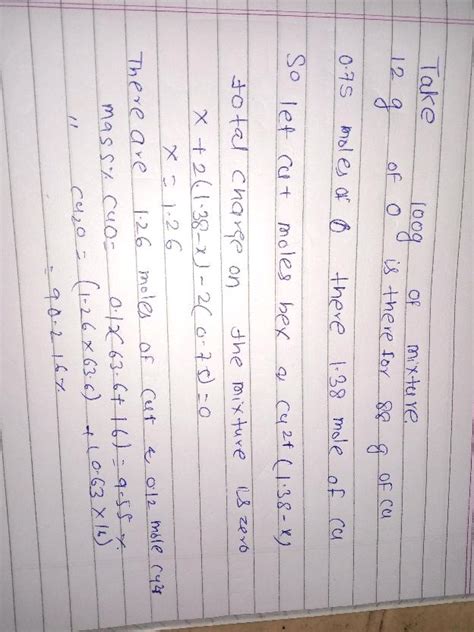 Take 100g of mixture.
12 g of O is there for 88 g of Cu
0.75 moles of O there 1.38 mole of Cu
So let Cu+ moles be x & Cu2+ (1.38-x)
total charge on the mixture is zero
x + 2(1.38-x) - 2(0.75) = 0
x = 1.26
There are 1.26 moles of Cu+ & 0.12 mole Cu2+
mass % CuO = 0.12(63.6+16) = 9.55%
" Cu2O = (1.26 x 63.6) + (0.63 x 16)
= 90.216%